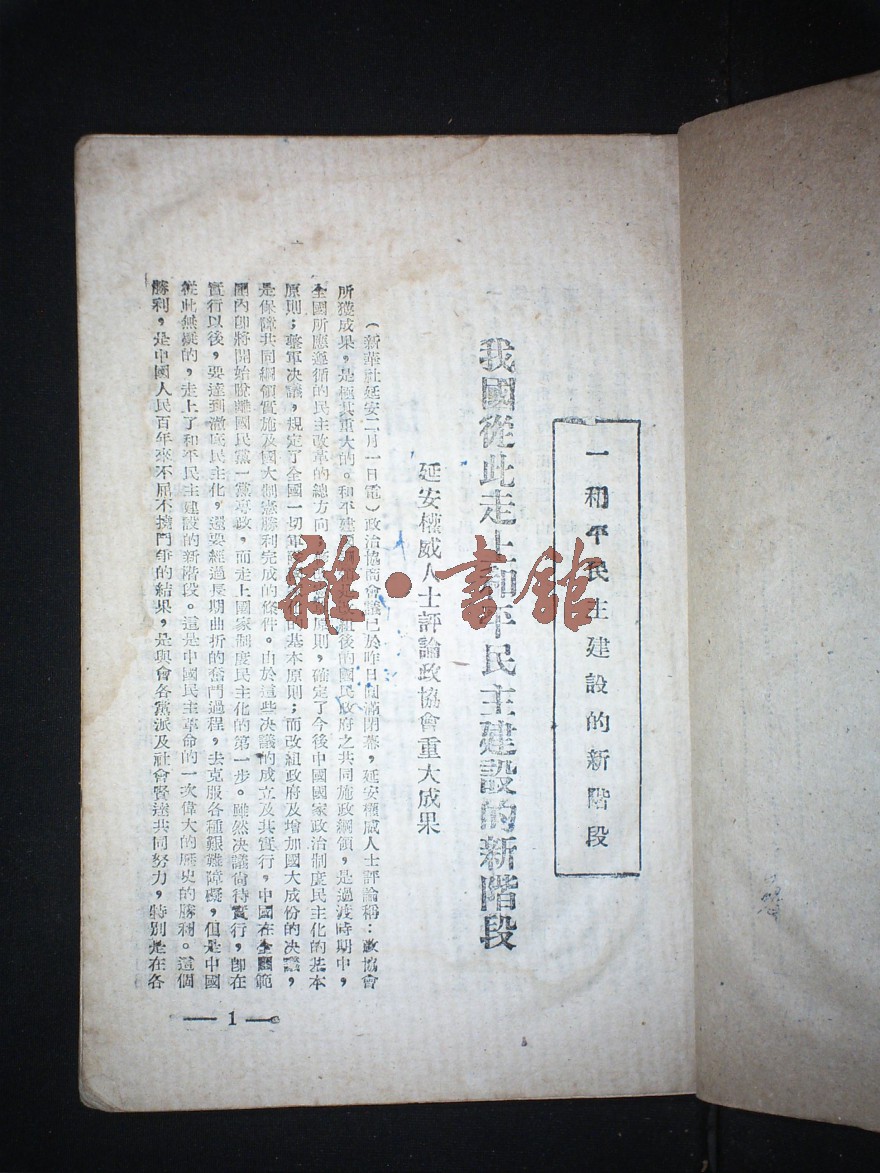 一 和平民主建設的新階段
我國從此走上和平民主建設的新階段
延安權威人士評論政協會重大成果
（新華社延安二月一日電）政治協商會議已於昨日圓滿閉幕，延安權威人士評論稱：政協會
所獲成果，是極其重大的。和平建國 組後的國民政府之共同施政綱領，是過渡時期中，
全國所應遵循的民主改革的總方向 原則，確定了今後中國國家政治制度民主化的基本
原則；整軍決議，規定了全國一切軍 化的基本原則；而改組政府及增加國大成份的決議，
是保障共同綱領實施及國大制憲勝利完成的條件。由於這些決議的成立及其實行，中國在全國範
圍內即將開始脫離國民黨一黨專政，而走上國家制度民主化的第一步。雖然決議尙待實行，卽在
實行以後，要達到澈底民主化，還要經過長期曲折的奮鬥過程，去克服各種艱難障礙，但是中國
從此無疑的，走上了和平民主建設的新階段。這是中國民主革命的一次偉大的歷史的勝利。這個
勝利，是中國人民百年來不屈不撓鬥爭的結果，是與會各黨派及社會賢達共同努力，特別是在各
— 1 —
雜·書館